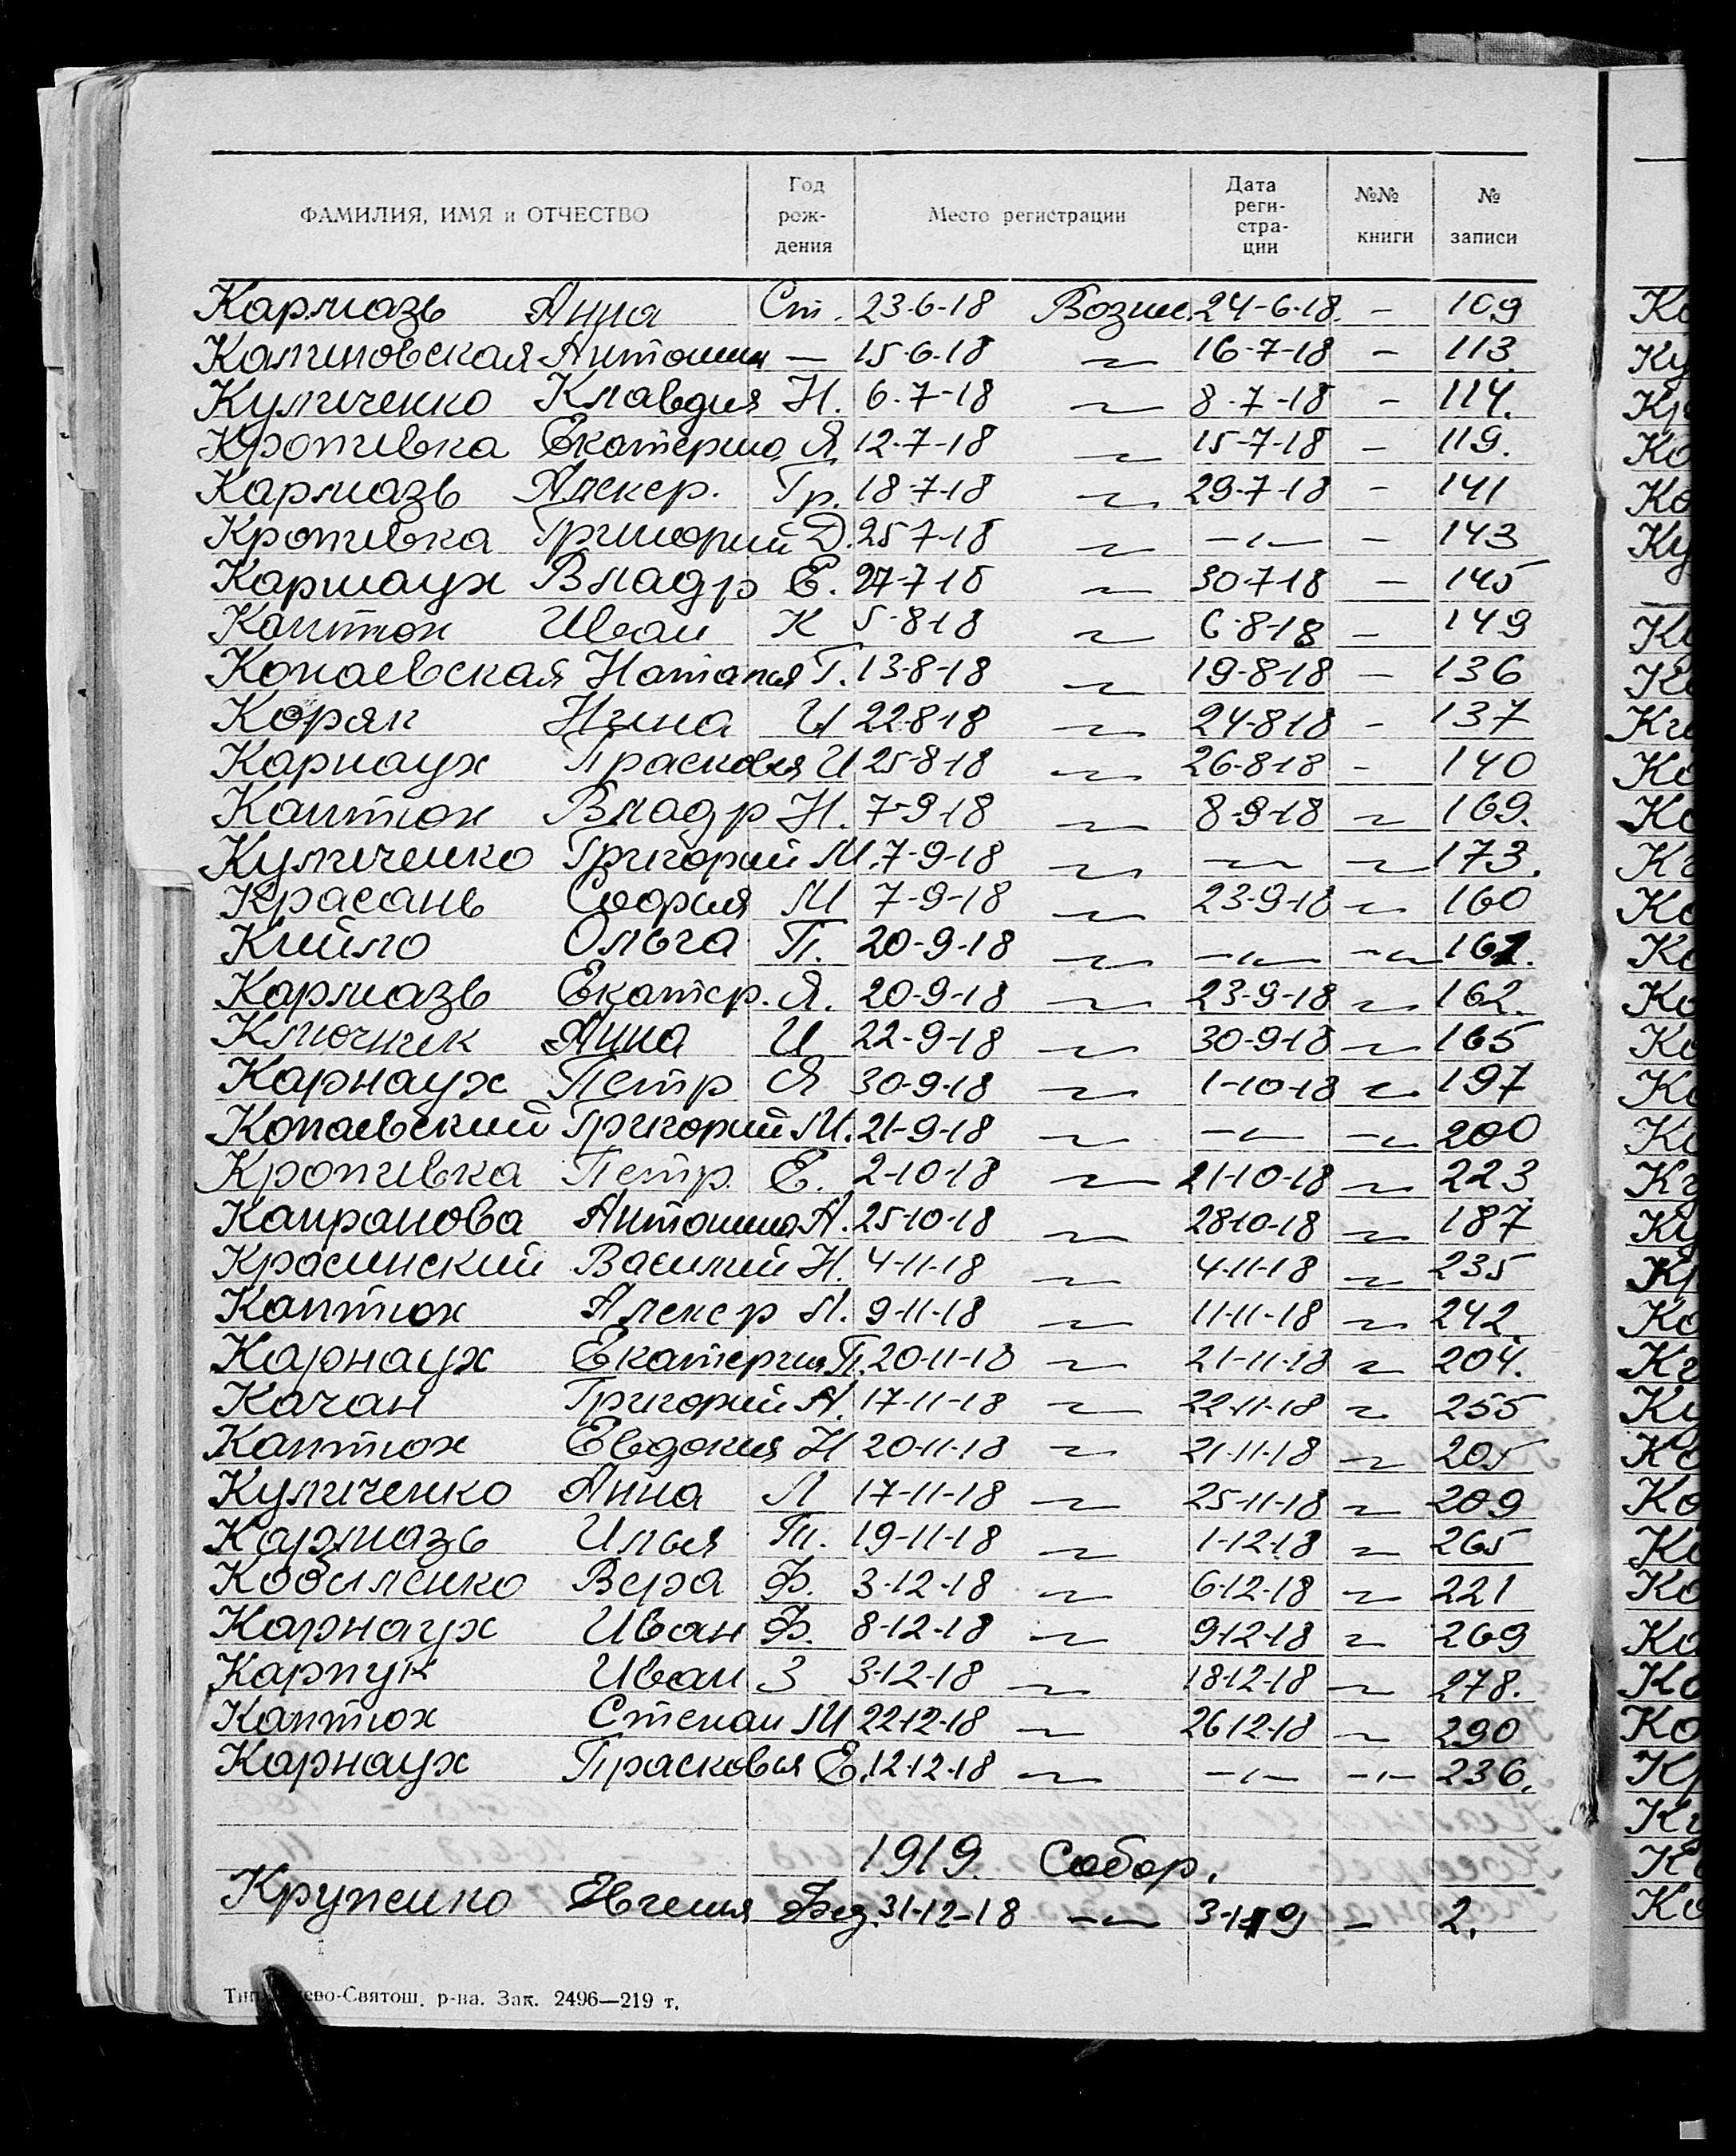 ФАМИЛИЯ, ИМЯ и ОТЧЕСТВО Год рож- дения Место регистрации Дата реги- стра- ции №№ книги № записи
Кармазь Анна Ст. 23-6-18 Вознес. 24-6-18. - 109
Калиновская Антонин — 15-6-18 〃 16-7-18 - 113
Куличенко Клавдия Н. 6.7-18 〃 8-7-18 - 114.
Кропивка Екатерина Я 12-7-18 〃 15-7-18 - 119.
Кармазь Алекср. Гр. 18-7-18 〃 29-7-18 - 141
Кропивка Григорий Д. 25 7-18 〃 -〃- - 143
Карнаух Владр Е. 27-7-18 〃 30-7-18 - 145
Каптюх Иван К 5-8-18 〃 6-8-18 - 149
Копаевская Наталья Г. 13-8-18 〃 19-8-18 - 136
Коряк Нина И 22-8-18 〃 24-8-18 - 137
Карнаух Прасковья И 25-8-18 〃 26-8-18 - 140
Каптюх Владр Н. 7-9-18 〃 8-9-18 〃 169.
Куличенко Григорий М. 7-9-18 〃 〃 〃 173.
Красань София М 7-9-18 〃 23-9-18 〃 160
Кийло Ольга П. 20-9-18 〃 -〃- -〃- 161.
Кармазь Екатер. Я. 20-9-18 〃 23-9-18 〃 162.
Ключник Анна И 22-9-18 〃 30-9-18 〃 165
Карнаух Петр Я 30-9-18 〃 1-10-18 〃 197
Копаевский Григорий М. 21-9-18 〃 -〃- -〃- 200
Кропивка Петр. Е. 2-10-18 〃 21-10-18 〃 223
Капранова Антонина А. 25-10-18 〃 28-10-18 〃 187
Красинский Василий Н. 4-11-18 〃 4-11-18 〃 235
Каптюх Алекср Л. 9-11-18 〃 11-11-18 〃 242.
Карнаух Екатерин П. 20-11-18 〃 21-11-18 〃 204.
Качан Григорий А. 17-11-18 〃 22-11-18 〃 255
Каптюх Евдокия Н 20-11-18 〃 21-11-18 〃 205
Куличенко Анна Л 17-11-18 〃 25-11-18 〃 209
Кармазь Илья Т. 19-11-18 〃 1-12-18 〃 265
Кобыленко Вера Ф. 3-12-18 〃 6-12-18 〃 221
Карнаух Иван Ф. 8-12-18 〃 9-12-18 〃 269
Карпук Иван З 3-12-18 〃 18-12-18 〃 278.
Каптюх Степан М 22-12-18 〃 26 12-18 〃 290
Карнаух Прасковья Е. 12-12-18 〃 -〃- -〃- 236.
1919. Собор.
Крупенко Евгения Фед. 31-12-18 -〃- 3-1-19 - 2.
р-на. Зак. 2496—219 т.